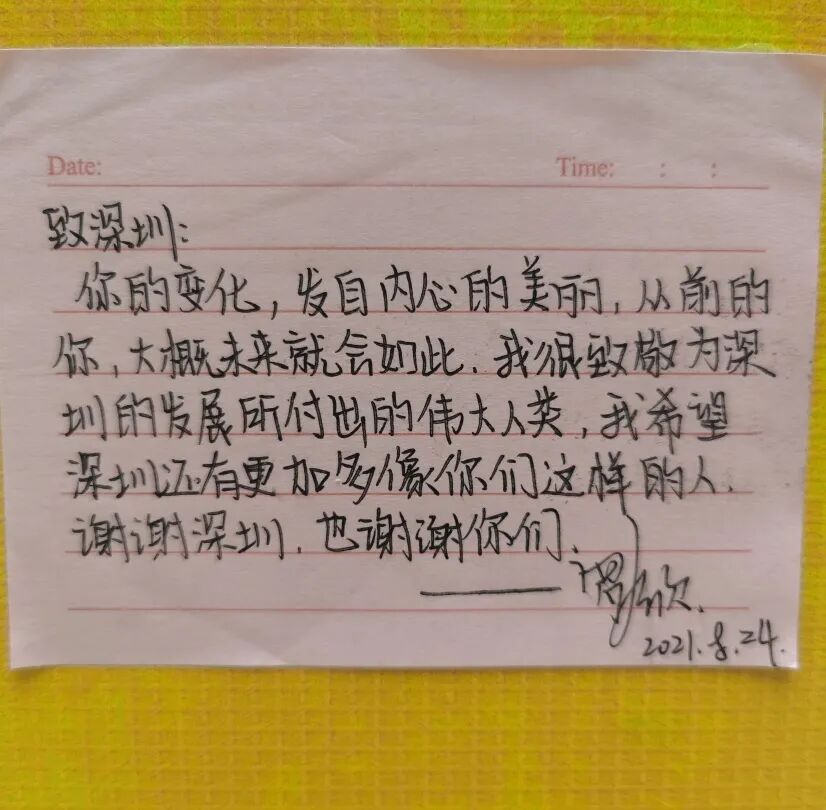 Date: Time: : :
致深圳:
你的变化，发自内心的美丽，从前的
你，大概未来就会如此．我很致敬为深
圳的发展所付出的伟大人类，我希望
深圳还有更加多像你们这样的人．
谢谢深圳．也谢谢你们．
2021.8.24.